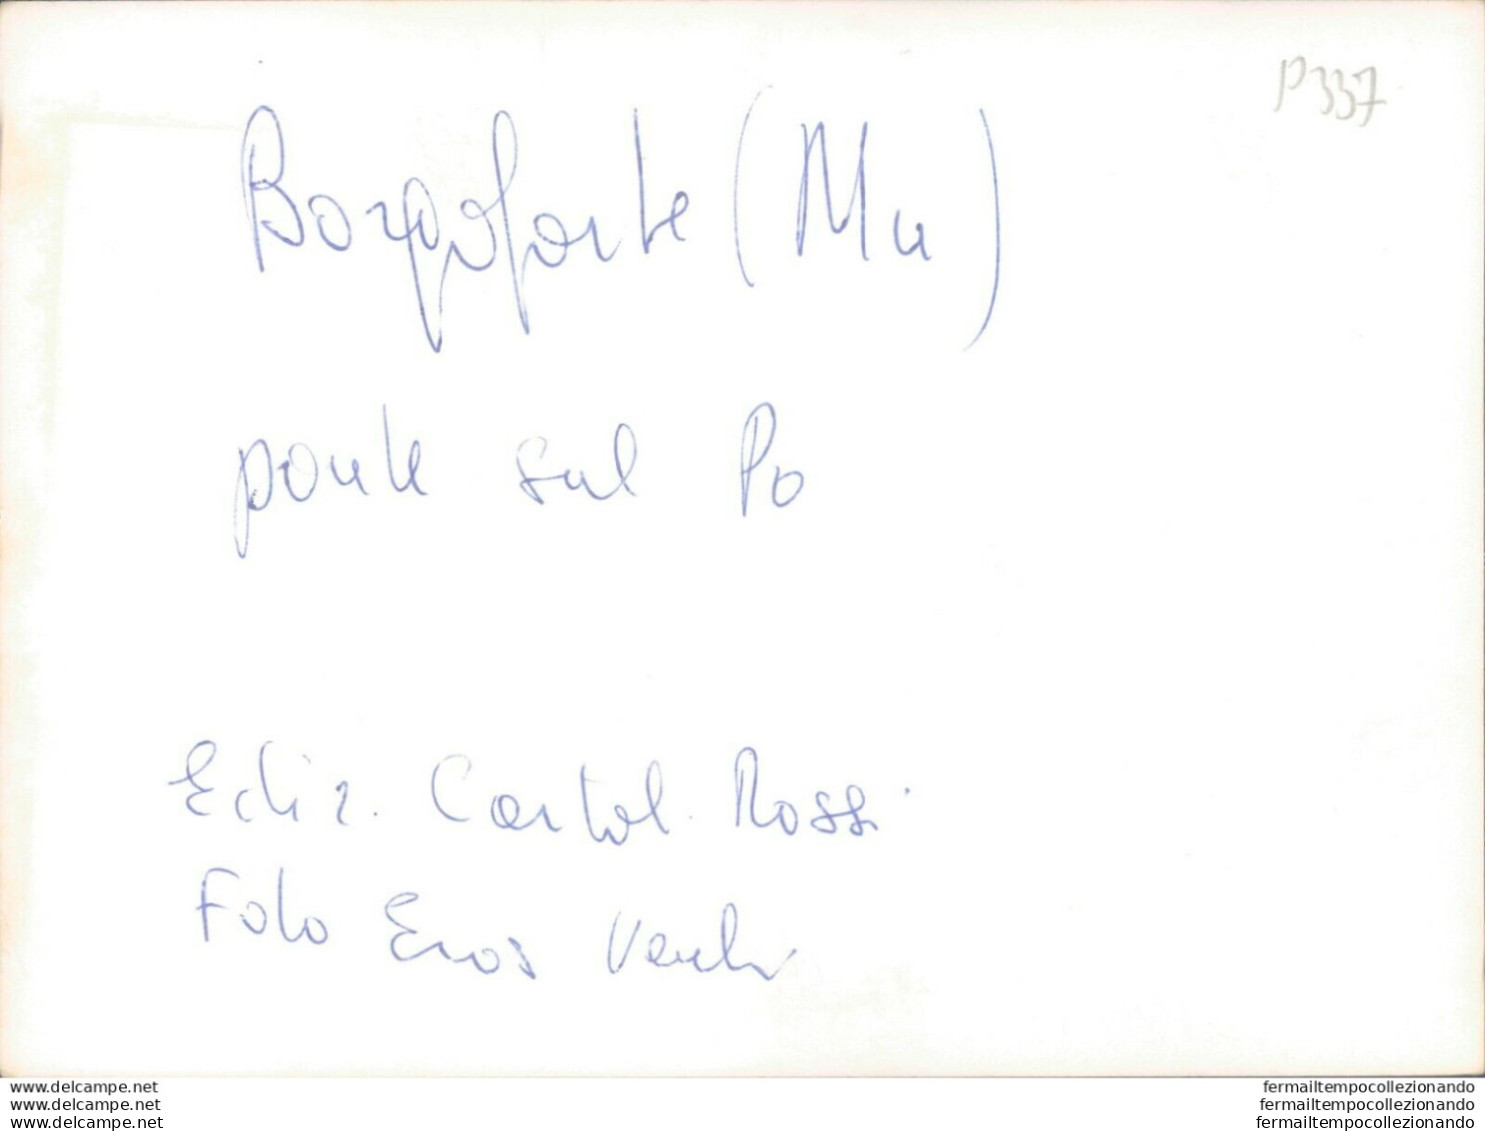 P337
Borgoforte (Mn)
ponte sul Po
Ediz. Cartol. Rossi
Foto Eros
www.delcampe.net
www.delcampe.net
www.delcampe.net
fermailtempocollezionando
fermailtempocollezionando
fermailtempocollezionando